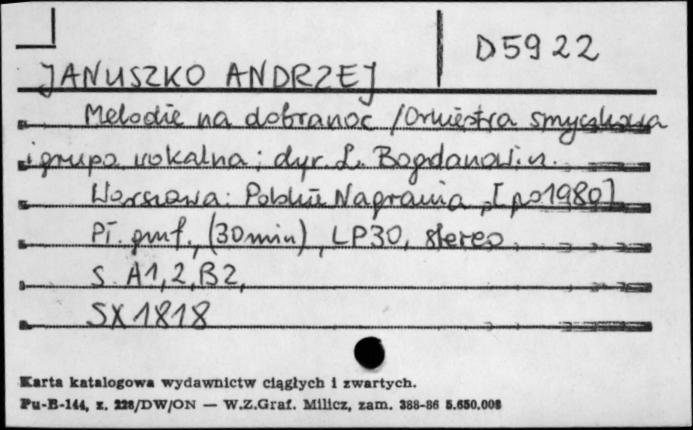 D5922
JANUSZKO ANDRZEJ
Melodie na dobranoc /Orkiestra smyczkowa
i grupa wokalna ; dyr. L. Bogdanowicz.
Warszawa: Polskie Nagrania, [po1980]
Pł. gmf., (30min), LP30, stereo
S. A1,2,B2,
SX1818
Karta katalogowa wydawnictw ciągłych i zwartych.
Pu-B-144, z. 228/DW/ON — W.Z.Graf. Milicz, zam. 388-86 5.650.008